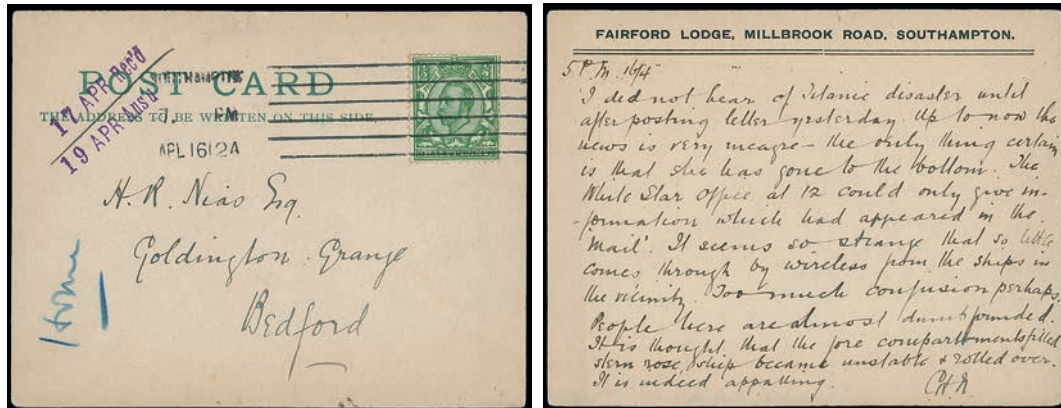 POST CARD
THE ADDRESS TO BE WRITTEN ON THIS SIDE
17 APR Rec'd
19 APR Ans'd
SOUTHAMPTON
7. PM
APL 16 12 A
H. R. Nias Esq.
Goldington Grange
Bedford
Home
FAIRFORD LODGE, MILLBROOK ROAD, SOUTHAMPTON.
5 P.M. 16/4
I did not hear of Titanic disaster until
after posting letter yesterday. Up to now the
news is very meagre – the only thing certain
is that she has gone to the bottom. The
White Star Office at 12 could only give in-
-formation which had appeared in the
'Mail'. It seems so strange that so little
comes through by wireless from the ships in
the vicinity. Too much confusion perhaps.
People here are almost dumbfounded.
It is thought that the fore compartments filled
stern rose, ship became unstable & rolled over.
It is indeed appalling.
C H N